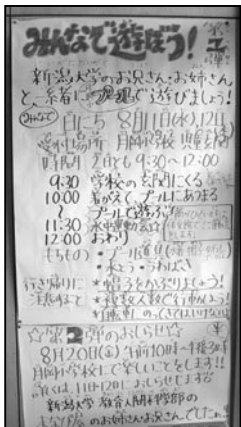 みんなで遊ぼう! 第1弾
新潟大学のお兄さん・お姉さん
と、一緒に プールで遊びましょう!
日にち 8月11日(水),12日
場所 月岡小学校
時間 2日とも 9:30~12:00
9:30 学校の玄関にくる
10:00 着がえて、プールにあつまる
~ プールで遊ぶ
11:30 水中運動会
12:00 おわり
もちもの ・プール道具
・水とう ・うわばき
行き帰りに *帽子をかぶりましょう!
注意すること *複数人数で行動しよう!
*自転車にのってきてはいけない
☆第2弾のおしらせ☆
8月20日(金) 午前10時~午後3時
月岡小学校にて楽しいことをします!!
くわしくは、11日・12日に おしらせします
新潟大学 教育人間科学部の
のお兄さんお姉さんでした